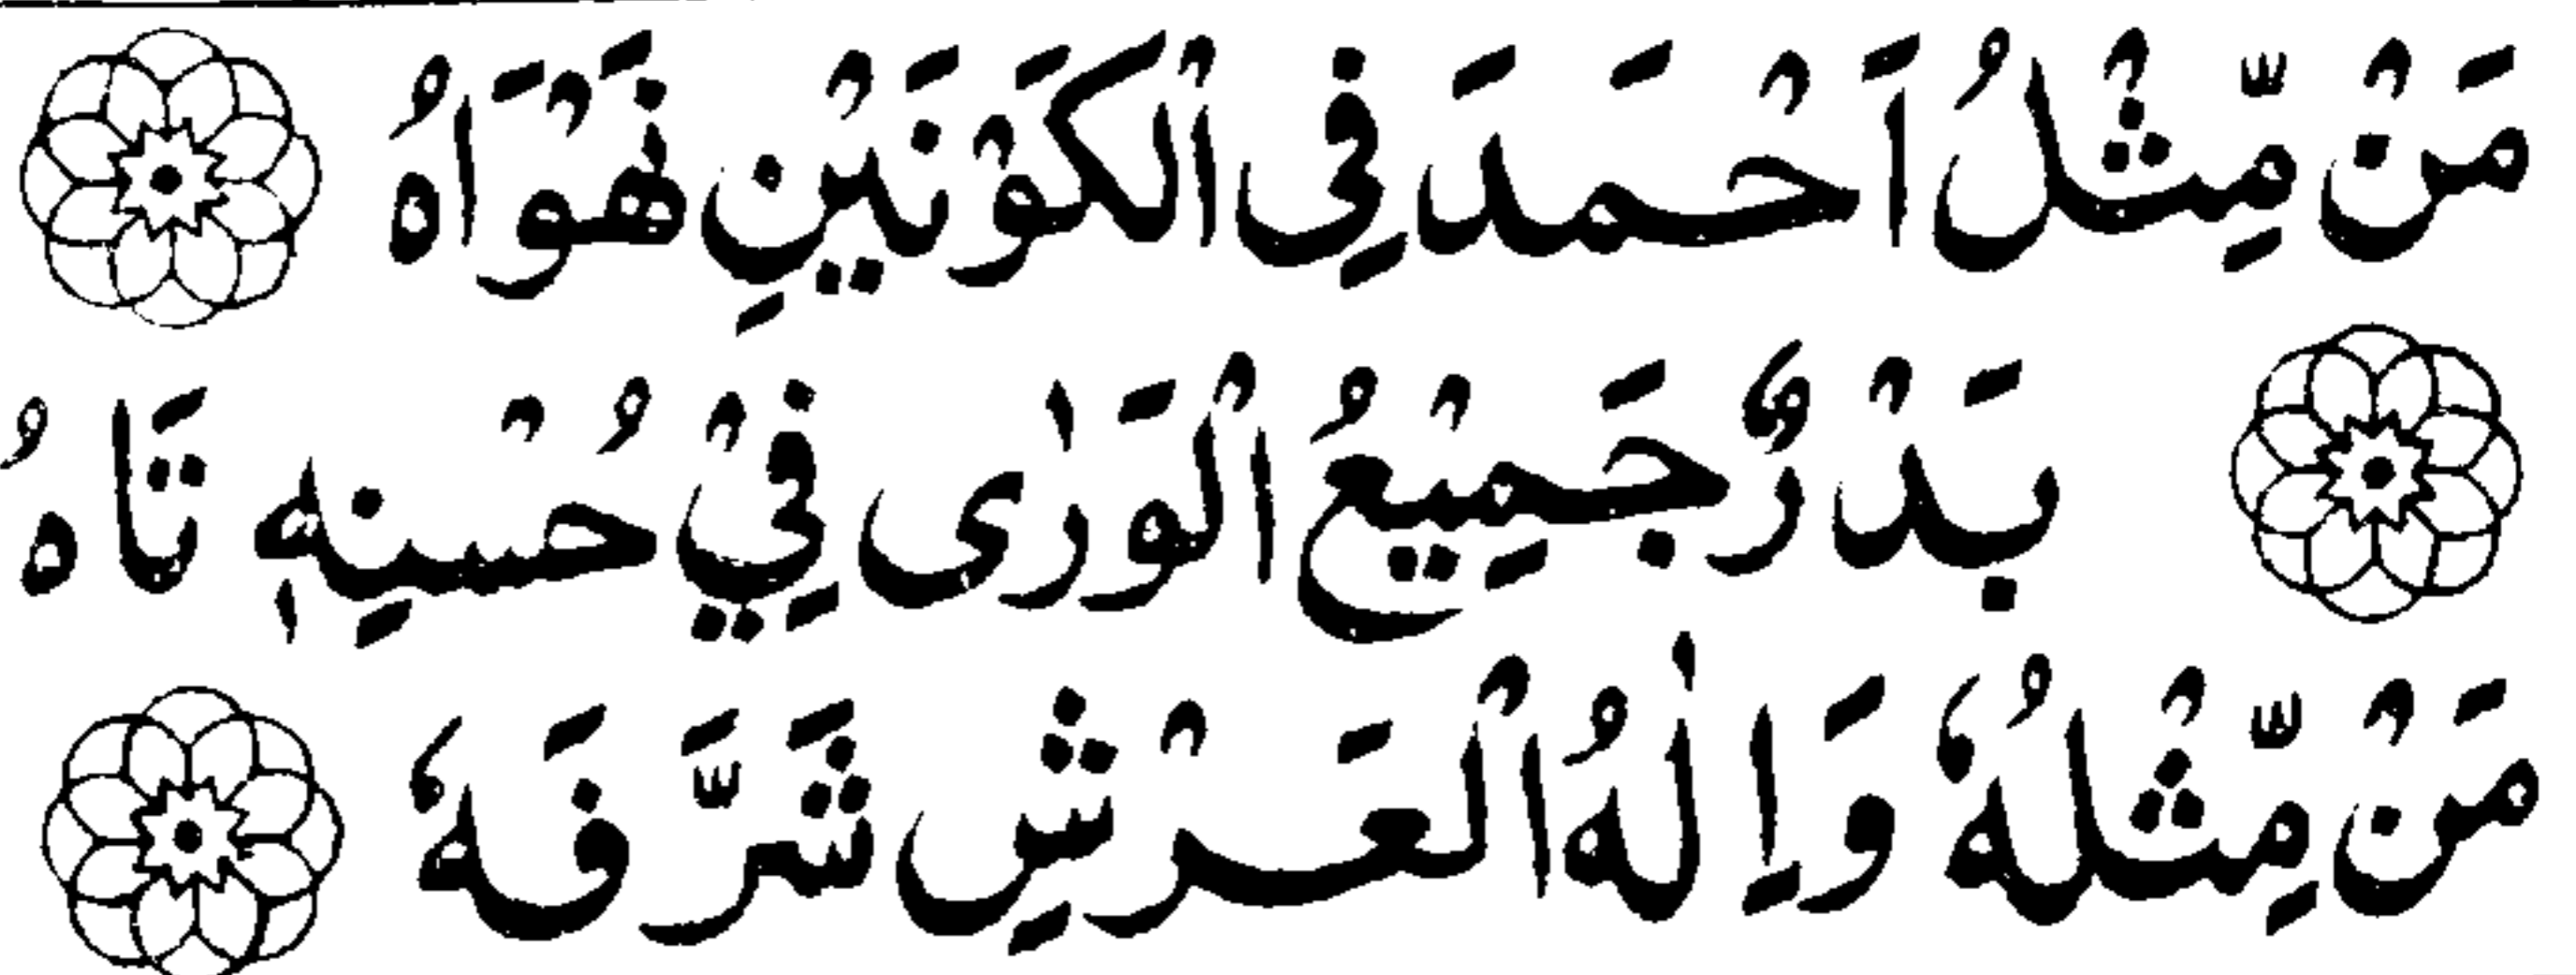 مَنْ مِّثْلُ اَحْمَدَ فِي الْكَوْنَيْنِ نَهْوَاهُ
بَدْرٌ جَمِيْعُ الْوَرٰى فِيْ حُسْنِهٖ تَاهُ
مَنْ مِّثْلُهٗ وَاِلٰهُ الْعَرْشِ شَرَّفَهٗ